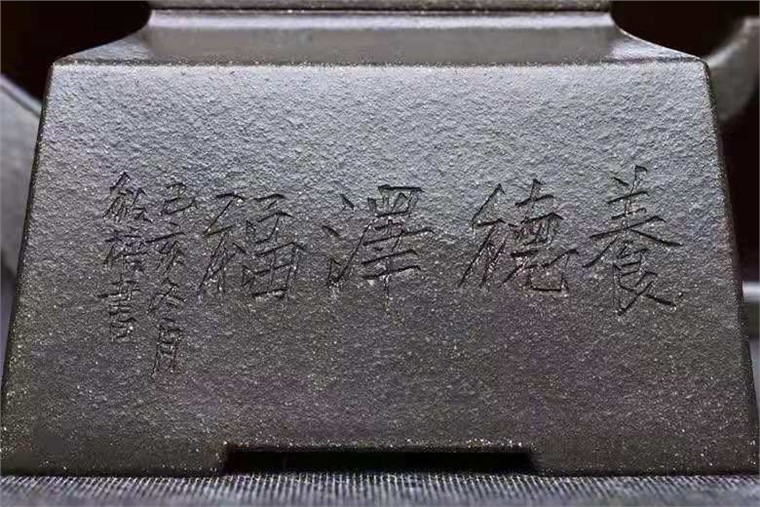 養德澤福
己亥冬月
敏禧書